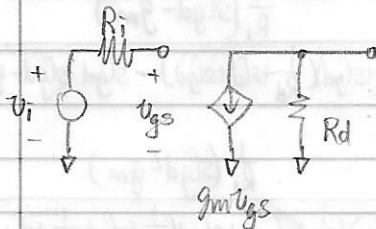 Ri
+
+
vi
vgs
-
-
Rd
gmvgs